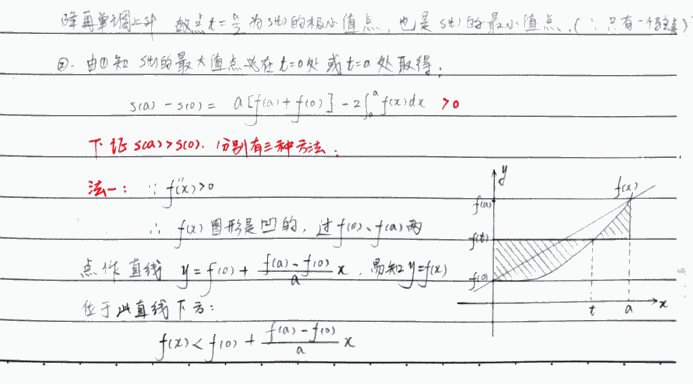 降再单调上升 故点t=a/2为S(t)的极小值点,也是S(t)的最小值点.(∵只有一个
②.由①知 S(t)的最大值点必在t=0处或t=a处取得,
S(a)-S(0)= a[f(a)+f(0)]-2∫₀ᵃf(x)dx >0
下证S(a)>S(0).分别有三种方法:
法一: ∵ f''(x)>0
∴ f(x)图形是凹的, 过f(0)、f(a)两
点作直线 y=f(0)+ (f(a)-f(0))/a x , 易知y=f(x)
位于此直线下方:
f(x)<f(0)+ (f(a)-f(0))/a x
y
f(x)
f(a)
f(t)
f(0)
t a x